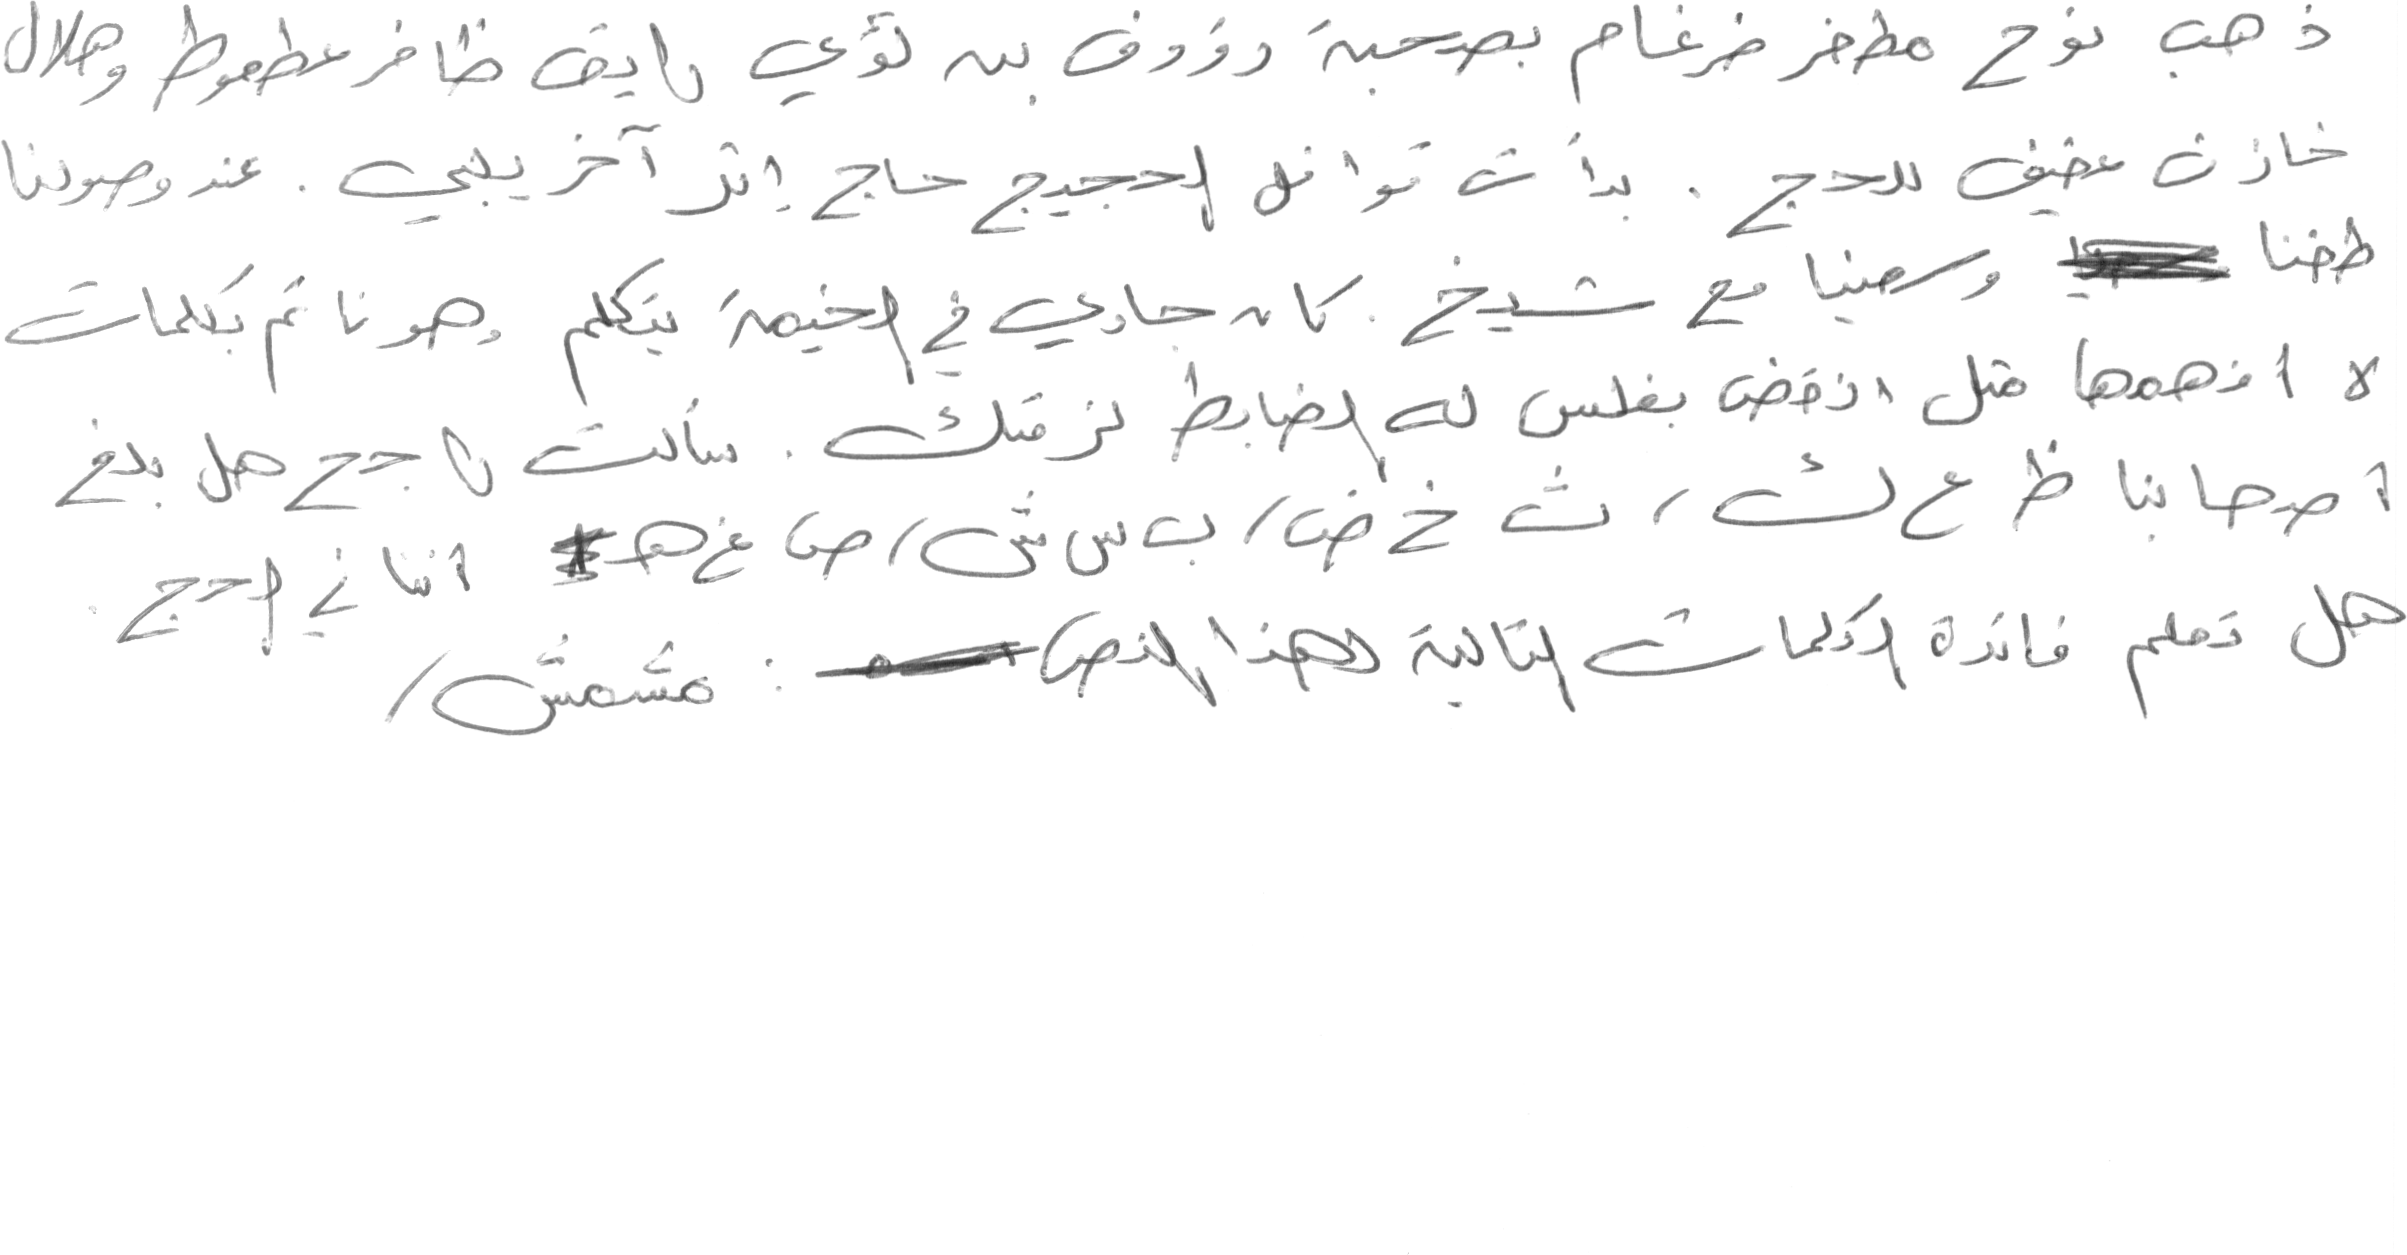 ذهب نوح مظفر ضرغام بصحبة رؤوف بن لؤي رايق ظافر عطعوط وهلال
خازن عفيف للحج . بدأت توافل الحجيج حاج إثر آخر يلبي . عند وصولنا
طفنا وسعينا مع شيخ . كان جاري في الخيمة يتكلم وهو نائم بكلمات
لا أفهمها مثل انقض بغلس له الضابط لزمتك . سألت راجح هل بلغ
أصحابنا ظ ع ك ، ث خ ض ، ب س ش ، ص غ هـ أثنائي الحج .
هل تعلم فائدة الكلمات التالية لهذا النص : مشمش ،